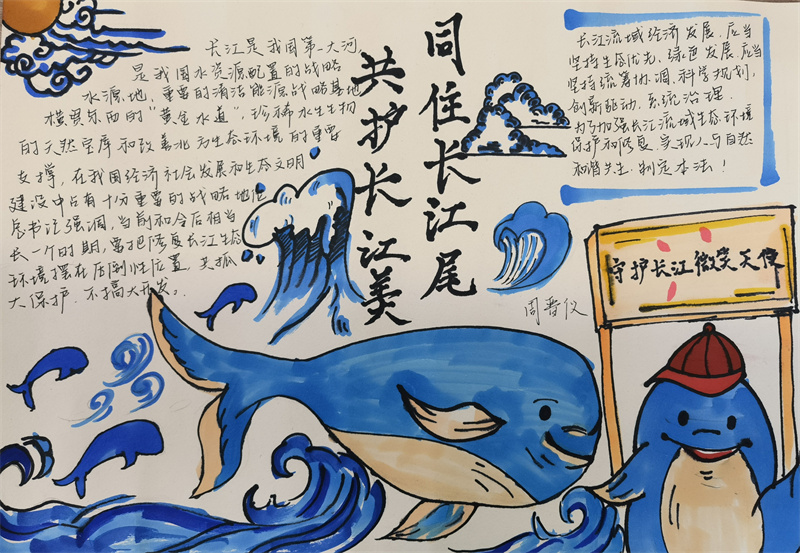 长江是我国第一大河
是我国水资源配置的战略
水源地、重要的清洁能源战略基地
横贯东西的“黄金水道”，珍稀水生生物
的天然宝库和改善北方生态环境的重要
支撑，在我国经济社会发展和生态文明
建设中占有十分重要的战略地位
总书记强调，当前和今后相当
长一个时期，要把修复长江生态
环境摆在压倒性位置，共抓
大保护，不搞大开发。
同住长江尾
共护长江美
长江流域经济发展，应当
坚持生态优先、绿色发展，应当
坚持统筹协调、科学规划，
创新驱动、系统治理。
为了加强长江流域生态环境
保护和修复，实现人与自然
和谐共生，制定本法！
周晋仪
守护长江微笑天使